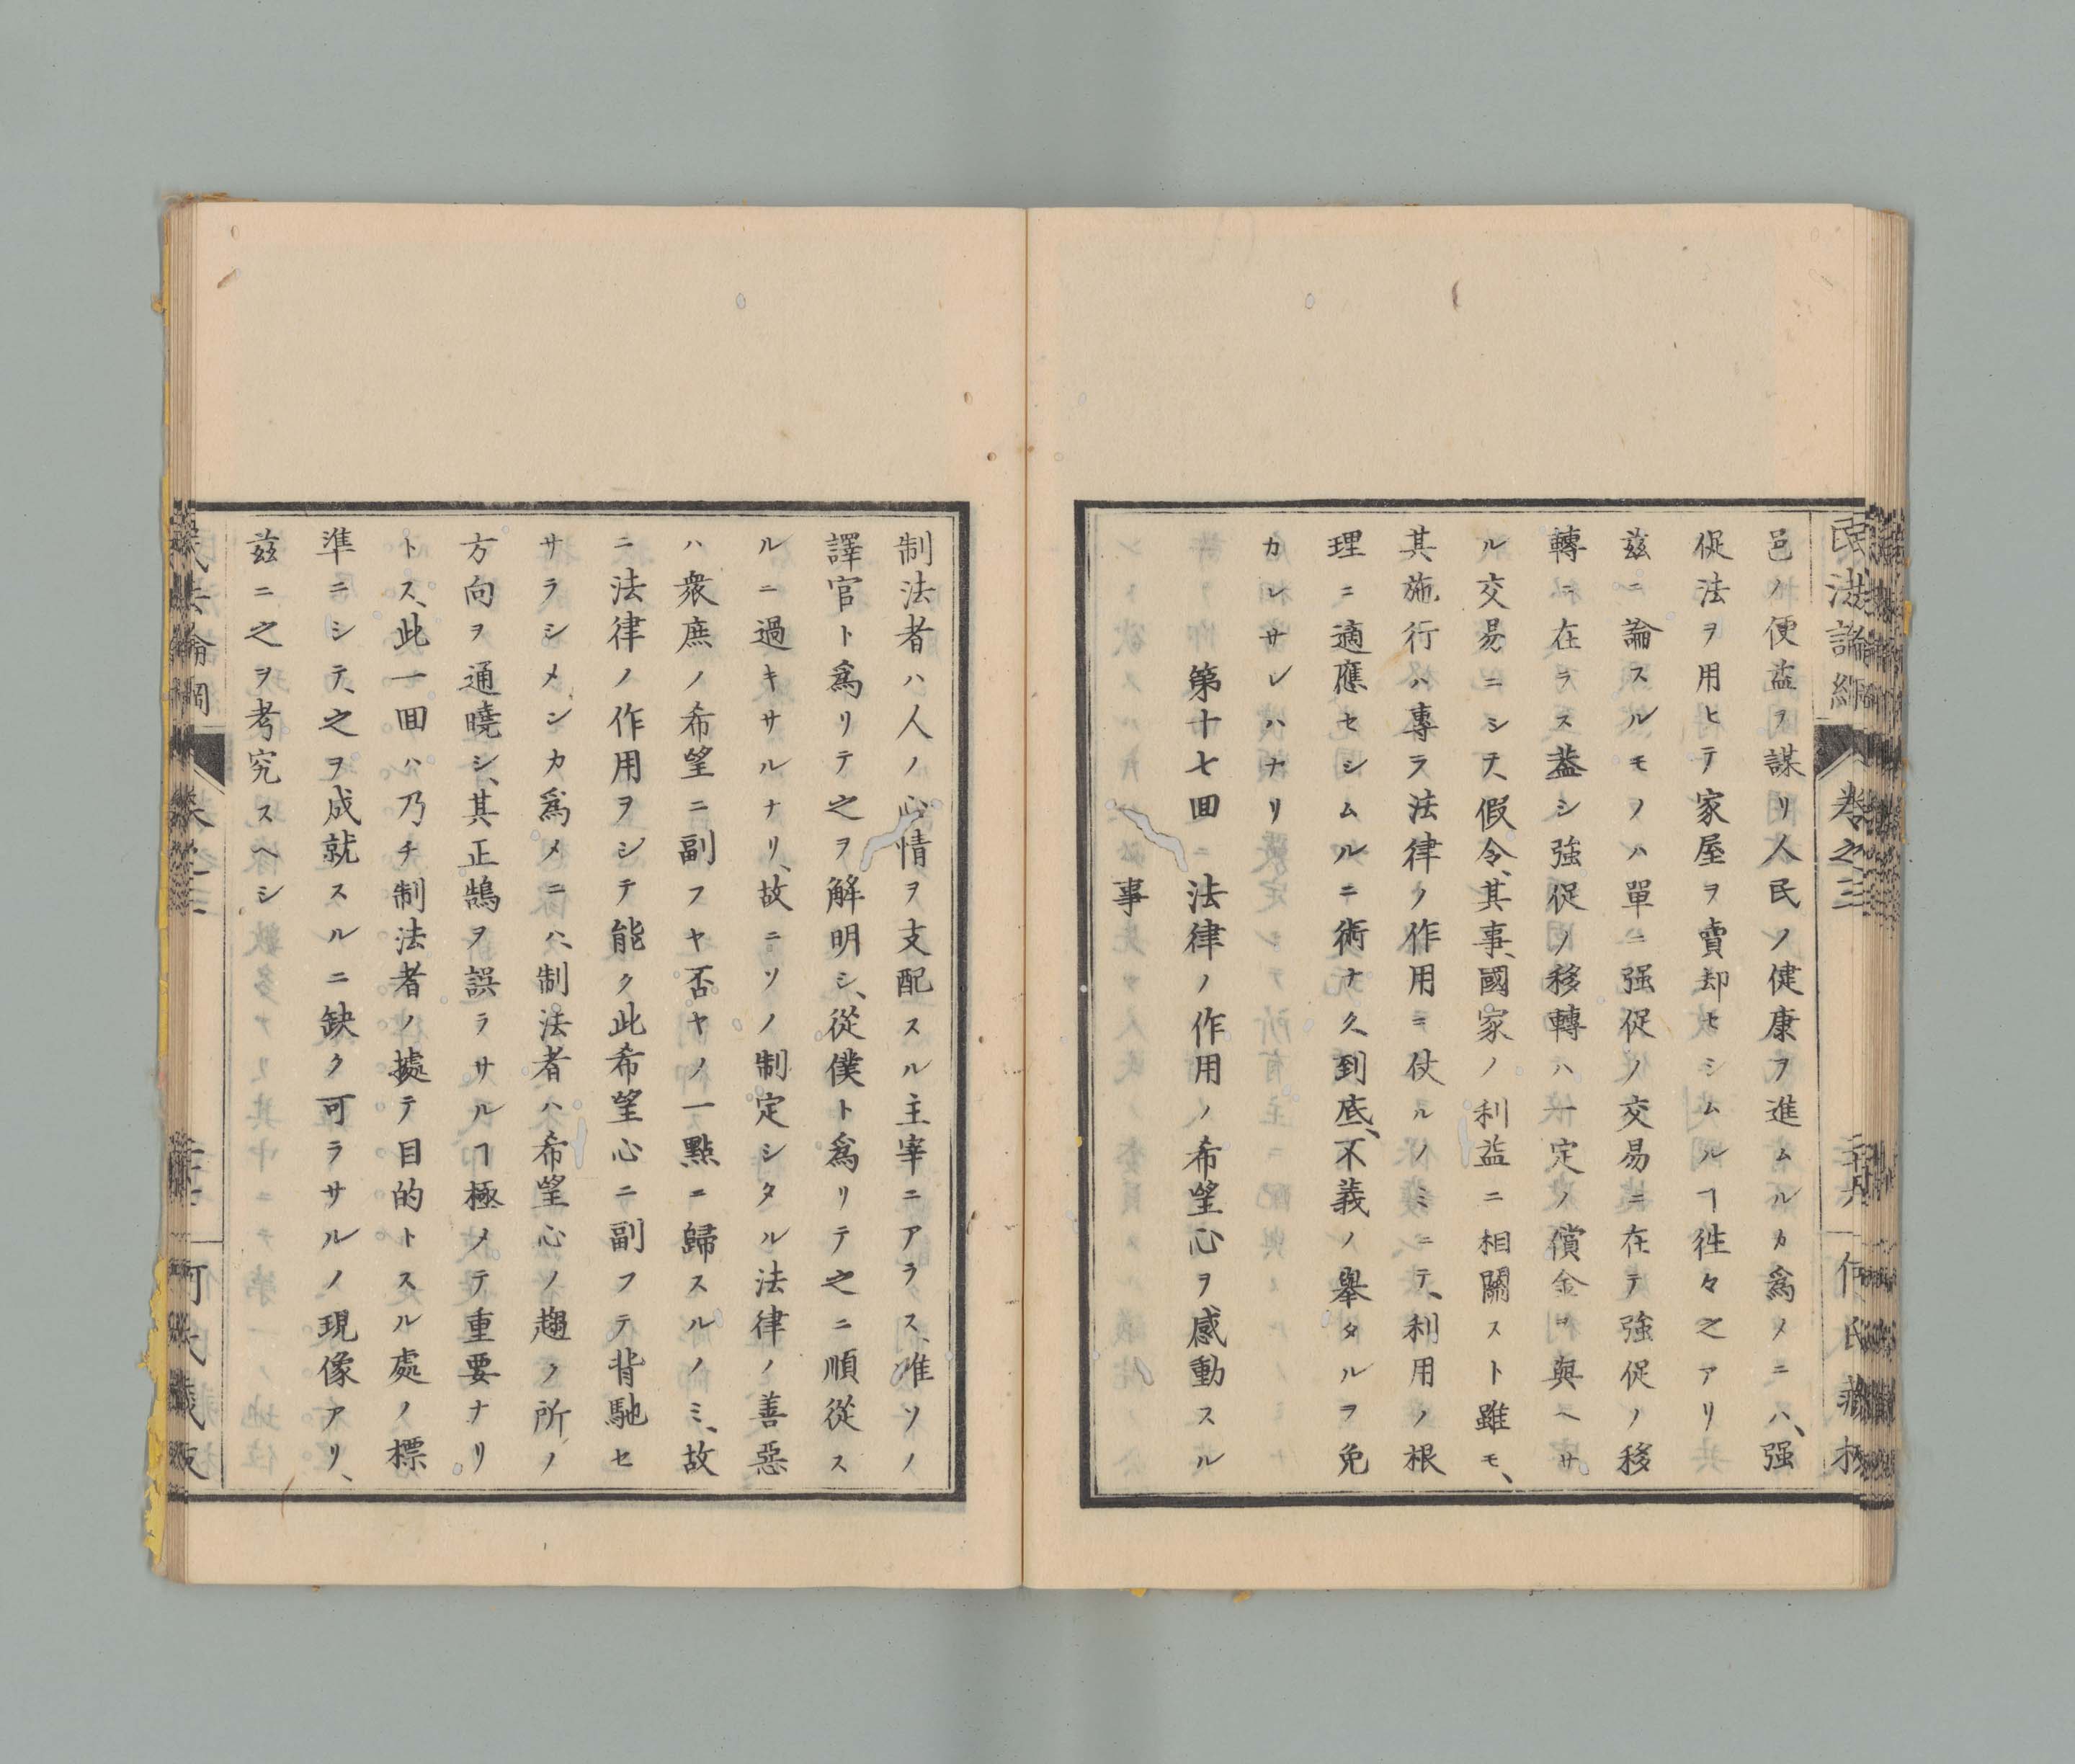 民法論綱 卷之三 何氏藏板
邑ノ便益ヲ謀リ人民ノ健康ヲ進ムルカ爲メニハ、强
促法ヲ用ヒテ家屋ヲ賣却セシムルヿ徃々之アリ
玆ニ論スルモノハ單ニ强促ノ交易ニ在テ強促ノ移
轉ニ在ラス葢シ強促ノ移轉ハ一定ノ償金ヲ與ヘサ
ル交易ニシテ、假令、其事、國家ノ利益ニ相關スト雖モ、
其施行ハ專ラ法律ノ作用ニ仗ルノミニテ、利用ノ根
理ニ適應セシムルニ術ナク、到底、不義ノ擧タルヲ免
カレサレハナリ
第十七回 法律ノ作用ノ希望心ヲ感動スル
事
制法者ハ人ノ心情ヲ支配スル主宰ニアラス、唯ソノ
譯官ト爲リテ之ヲ解明シ、從僕ト爲リテ之ニ順從ス
ルニ過キサルナリ、故ニソノ制定シタル法律ノ善惡
ハ衆庶ノ希望ニ副フヤ否ヤノ一點ニ歸スルノミ、故
ニ法律ノ作用ヲシテ能ク此希望心ニ副フテ背馳セ
サラシメンカ爲メニハ、制法者ハ希望心ノ趨クノ所ノ
方向ヲ通曉シ、其正鵠ヲ誤ラサルヿ極メテ重要ナリ
トス、此一回ハ乃チ制法者ノ據テ目的トスル處ノ標
準ニシテ、之ヲ成就スルニ缺ク可ラサルノ現像アリ、
玆ニ之ヲ考究スヘシ
民法論綱 卷之三 何氏藏板